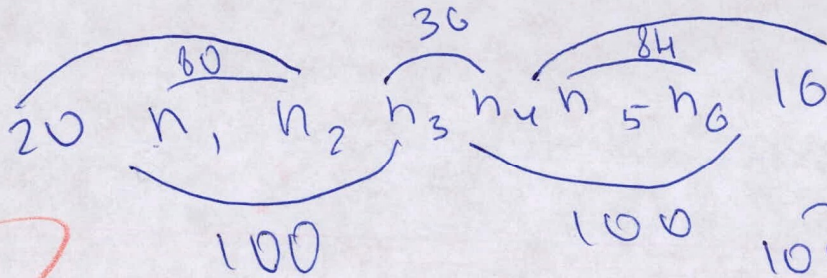 36
80 84
20 n₁ n₂ n₃ n₄ n₅ n₆ 16
100 100 10